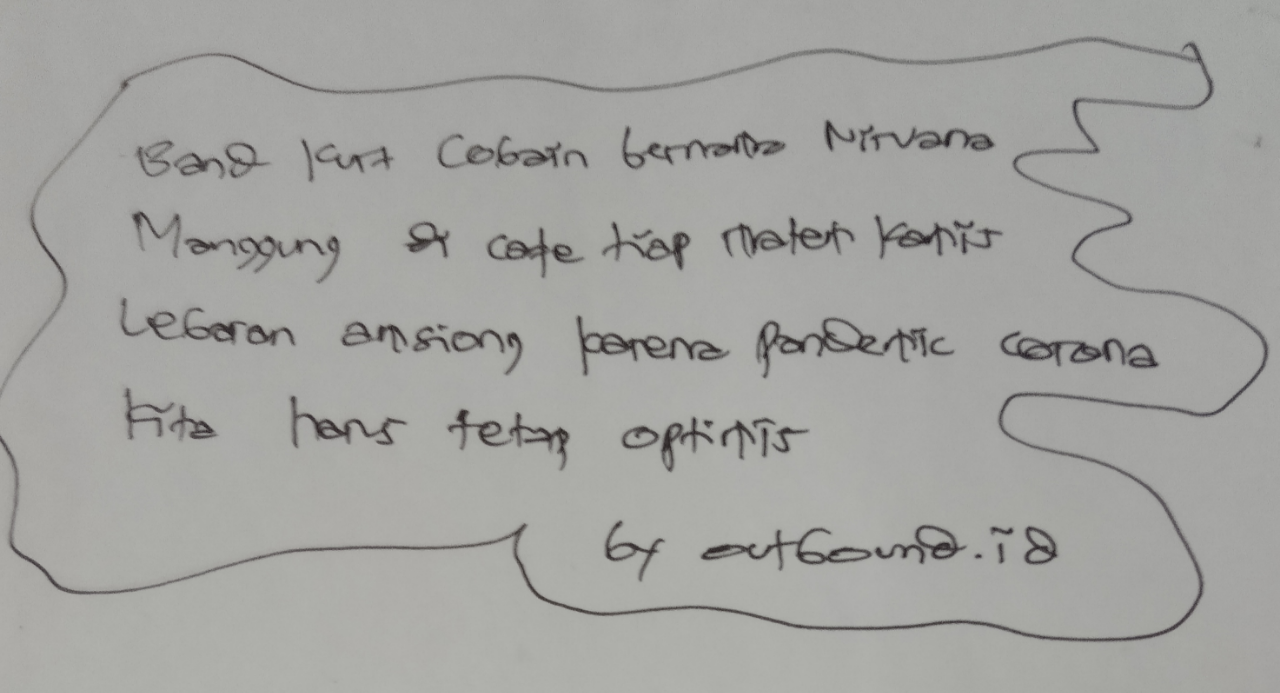 Band Kurt Cobain bernama Nirvana
Manggung di cafe tiap malem kamis
Lebaran amsiong karena pandemic corona
Kita harus tetap optimis
by outbound.id